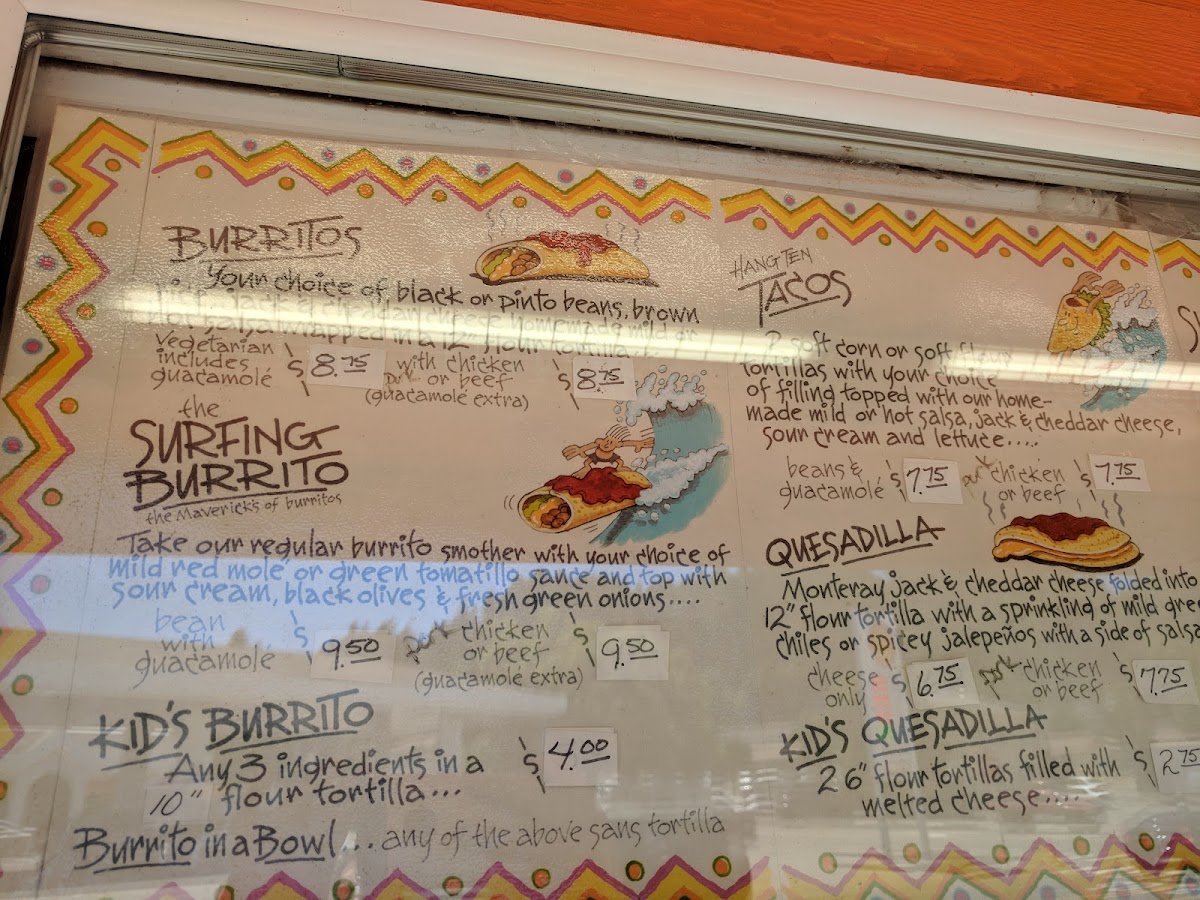 BURRITOS
Your choice of, black or pinto beans, brown
rice, jack & cheddar cheese homemade mild or
hot salsa wrapped in a 12" flour tortilla
vegetarian
includes
guacamolé
$ 8.75
with chicken
or beef
(guacamolé extra)
$ 8.75
the
SURFING
BURRITO
the Mavericks of burritos
Take our regular burrito smother with your choice of
mild red mole' or green tomatillo sauce and top with
sour cream, black olives & fresh green onions....
bean
with
guacamolé
$ 9.50
pork
chicken
or beef
(guacamolé extra)
$ 9.50
KID'S BURRITO
Any 3 ingredients in a
10" flour tortilla...
$ 4.00
Burrito in a Bowl... any of the above sans tortilla
HANG TEN
TACOS
2 soft corn or soft flour
tortillas with your choice
of filling topped with our home-
made mild or hot salsa, jack & cheddar cheese,
sour cream and lettuce.....
beans &
guacamolé
$ 7.75
pork
chicken
or beef
$ 7.75
QUESADILLA
Monteray jack & cheddar cheese folded into
12" flour tortilla with a sprinkling of mild gre
chiles or spicey jalepeños with a side of salsa
cheese
only
$ 6.75
pork
chicken
or beef
$ 7.75
KID'S QUESADILLA
2 6" flour tortillas filled with
melted cheese....
$ 2.75